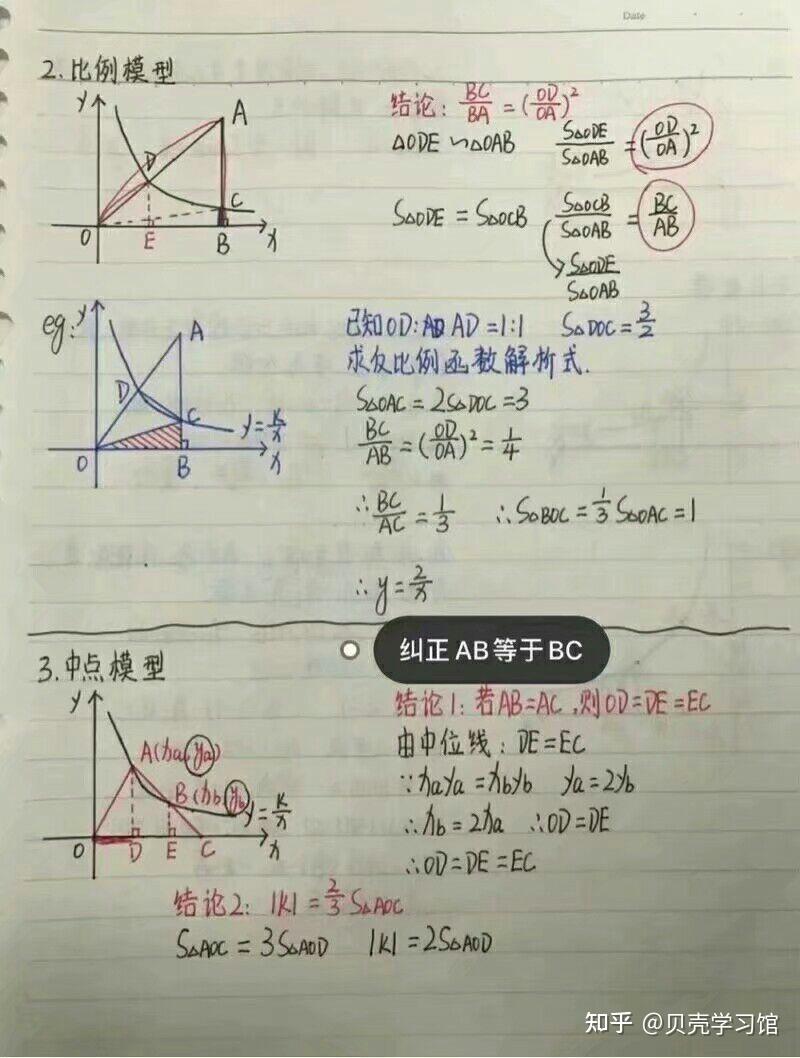 Date
2.比例模型
y
A
D
C
O
E
B
x
结论: BC/BA = (OD/OA)²
△ODE ∽ △OAB S△ODE/S△OAB = (OD/OA)²
S△ODE = S△OCB S△OCB/S△OAB = BC/AB
S△ODE/S△OAB
eg:
y
A
D
C
y=k/x
O
B
x
已知OD: AD=1:1 S△DOC=3/2
求反比例函数解析式.
S△OAC = 2S△DOC=3
BC/AB = (OD/OA)² = 1/4
∴BC/AC = 1/3 ∴S△BOC = 1/3 S△OAC = 1
∴y = 2/x
纠正AB等于BC
3.中点模型
y
A(xa,ya)
B(xb,yb)
y=k/x
O
D
E
C
x
结论1: 若AB=AC,则OD=DE=EC
由中位线: DE=EC
∵xaya = xbyb ya=2yb
∴xb=2xa ∴OD=DE
∴OD=DE=EC
结论2: |k| = 2/3 S△AOC
S△AOC = 3S△AOD |k| = 2S△AOD
知乎 @贝壳学习馆